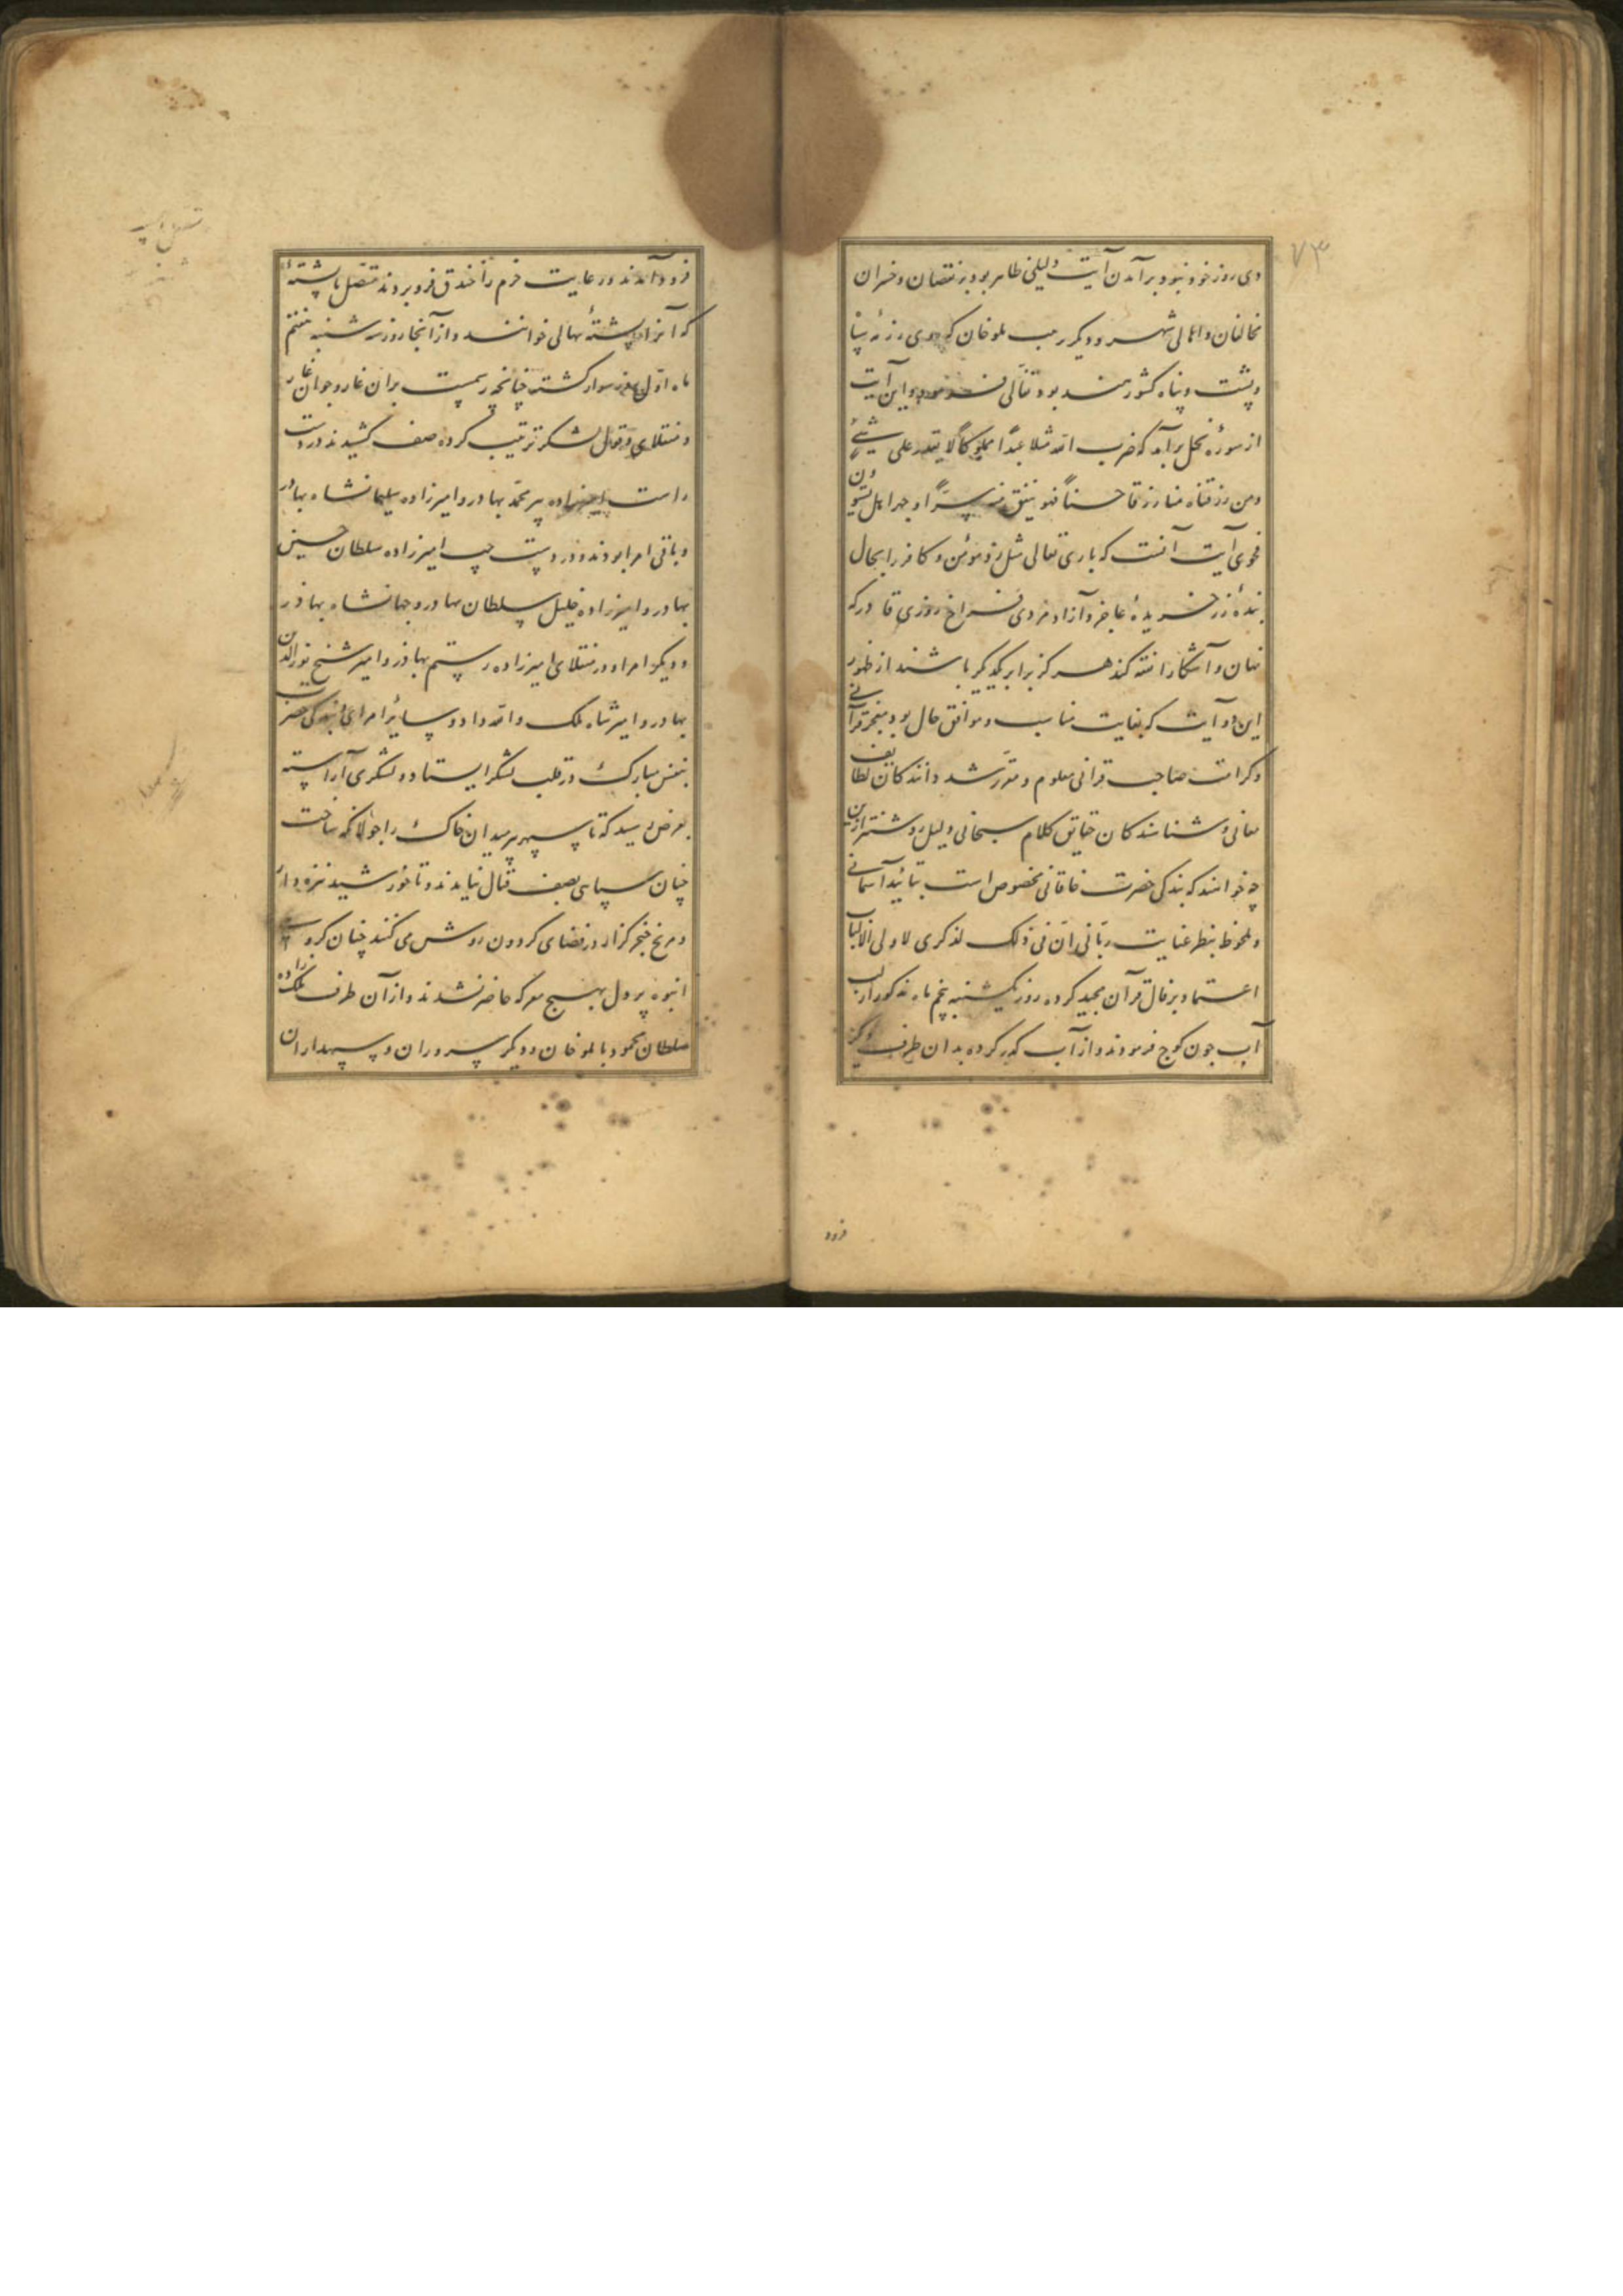 ۷۳
دی روز خود نبود برآمدن آیت دلیلی ظاهر بود بر نقصان و خسران
مخالفان و اهالی شهر و دیگر ملوخان که روی رزمه سپاه
و پشت و پناه کشور هند بود تفألی فرمودند و این آیت
از سورهٔ نحل برآمد که ضرب الله مثلا عبدا مملوکا لا یقدر علی شیئ
ومن رزقناه منا رزقا حسنا فهو ینفق منه سرا و جهرا هل یستوون
فحوی آیت آنست که باری تعالی مثل زد مؤمن و کافر را بحال
بندهٔ زرخریدهٔ عاجز و آزاد مردی فراخ روزی قادر که
نهان و آشکارا نفقه کند هرگز برابر یکدیگر باشند از ظهور
این دو آیت که بغایت مناسب و موافق حال بود معجزه قرآنی
و کرامت صاحب قرانی معلوم و مقرر شد دانندکان لطایف
معانی و شناسندکان حقایق کلام سبحانی دلیل روشنتر ازین
چه خوانند که بندکی حضرت خاقانی مخصوص است بتائید آسمانی
و ملحوظ بنظر عنایت ربانی ان فی ذلک لذکری لاولی الالباب
اعتماد بر فال قرآن مجید کرده روز یکشنبه پنجم ماه مذکور از لب
آب جون کوچ فرمودند و از آب کذر کرده بدان طرف
فرود
فرود آمدند و رعایت حزم را خندق فرو بردند متصل با پشتهٔ
که آنرا پشتهٔ بهالی خوانند و از آنجا روز سه شنبه هفتم
ماه اول روز سوار کشته چنانچه رسمست برانغار و جوانغار
و منقلای و قول لشکر ترتیب کرده صف کشیدند در دست
راست امیرزاده پیر محمد بهادر و امیرزاده سلیمانشاه بهادر
و باقی امرا بودند و در دست چپ امیرزاده سلطان حسین
بهادر و امیرزاده خلیل سلطان بهادر و جهانشاه بهادر
و دیکر امرا و در منقلای امیرزاده رستم بهادر و امیر شیخ نورالدین
بهادر و امیر شاه ملک و الله داد و سائر امرای بندکی حضرت
بنفس مبارک در قلب لشکر ایستاد و لشکری آراسته
بعرض رسید که تا سپهر بر میدان خاک را جولانکه ساخت
چنان سپاهی بصف قتال نیامدند و تا خورشید نیزه دار
و مریخ خنجر کزار در فضای کردون روش می کنند چنان کروهی
انبوه پر دل بهیچ معرکه حاضر نشدند و از آن طرف ملک زاده
سلطان محمود با ملوخان و دیکر سروران و سپهداران